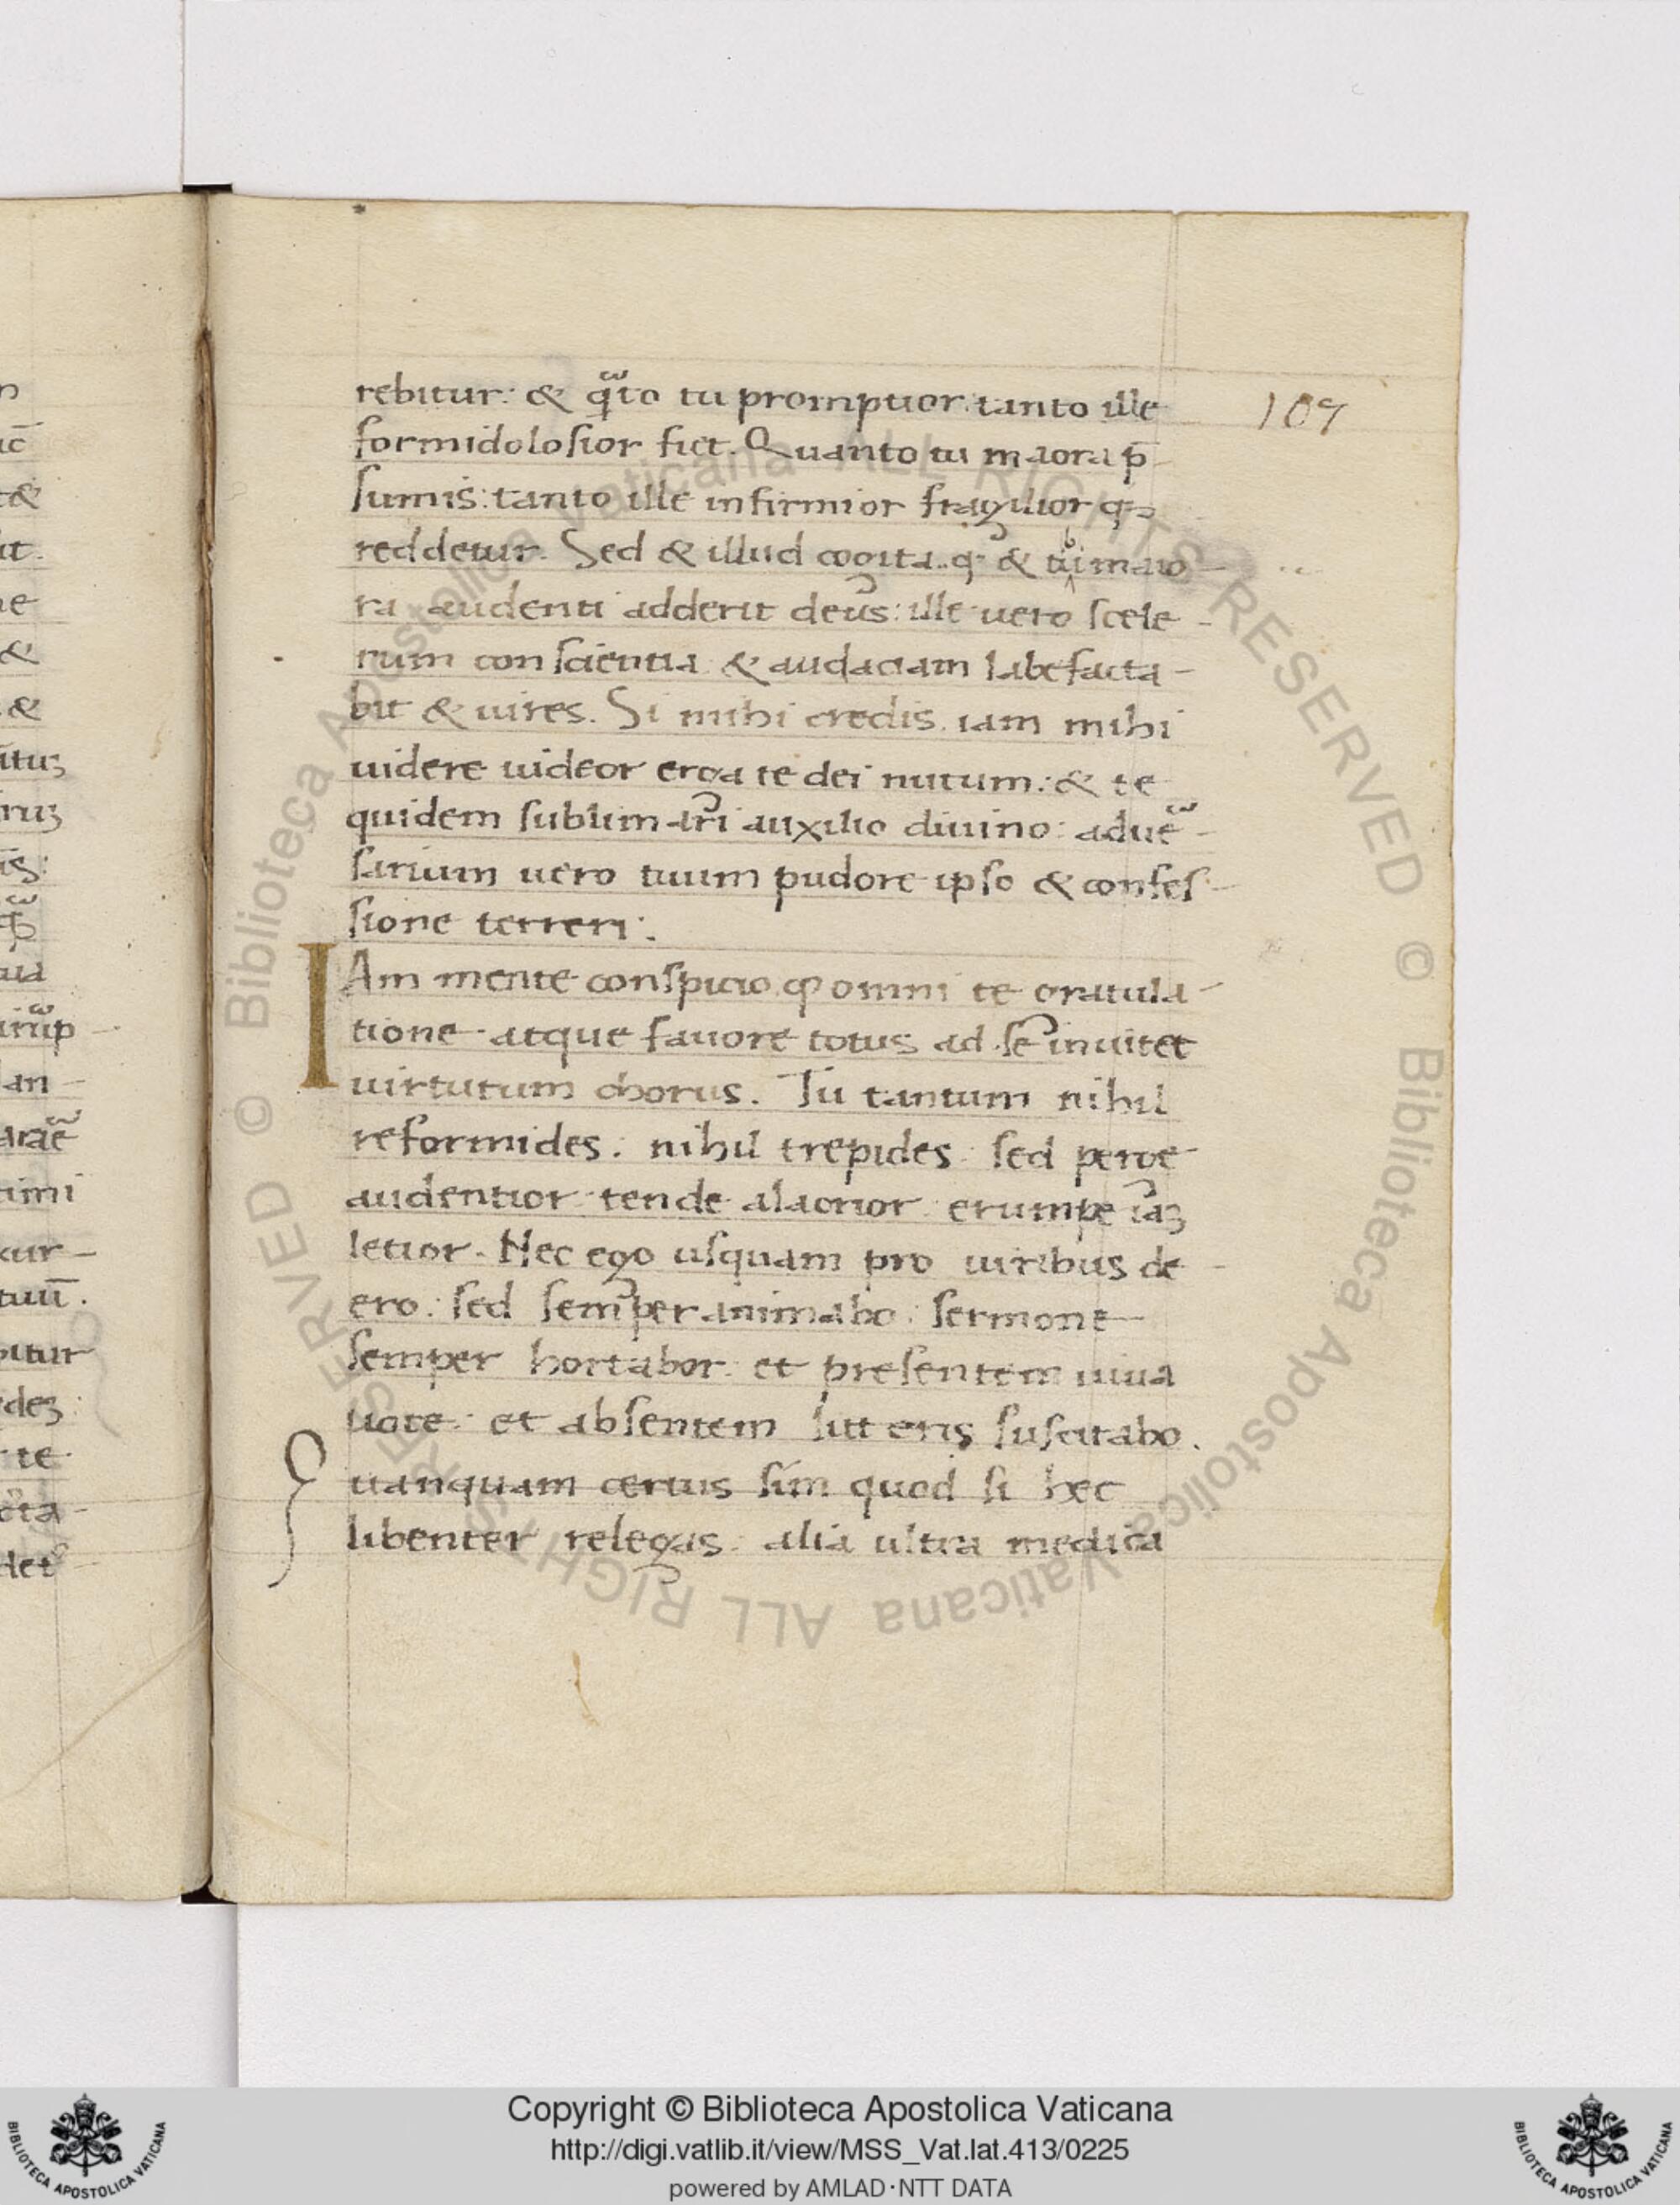 rebitur: & q̃to tu promptior: tanto ille
formidolosior fiet. Quanto tu maiora p̄
sumis: tanto ille infirmior fragilior q;
reddetur. Sed & illud cogita. & maio
ra audenti adderit deus: ille uero scele
rum conscientia & audaciam labefacta
bit & uires. Si mihi credis. iam mihi
uidere uideor erga te dei nutum: & te
quidem sublimari auxilio diuino: aduẽ
sarium uero tuum pudore ipso & confes
sione terreri:
IAm mente conspicio ꝙ omni te gratula
tione atque fauore totus ad se inuitet
uirtutum chorus. Tu tantum nihil
reformides: nihil trepides: sed perge
audentior tende alacrior erumpe iaꝫ
letior. Nec ego usquam pro uiribus de
ero: sed semper animabo: sermone
semper hortabor: et presentem uiua
uoce: et absentem litteris suscitabo.
uanquam certus sim quod si hec
libenter relegas: alia ultra medica
109
n
t&
ut.
ne
&
&
itus
ruꝫ
ua
lan
imi
tuū.
bitur
te
cta
det
© Biblioteca Apostolica Vaticana ALL RIGHTS RESERVED © Biblioteca Apostolica Vaticana ALL RIGHTS RESERVED
Copyright © Biblioteca Apostolica Vaticana
http://digi.vatlib.it/view/MSS_Vat.lat.413/0225
powered by AMLAD·NTT DATA
BIBLIOTECA APOSTOLICA VATICANA
BIBLIOTECA APOSTOLICA VATICANA